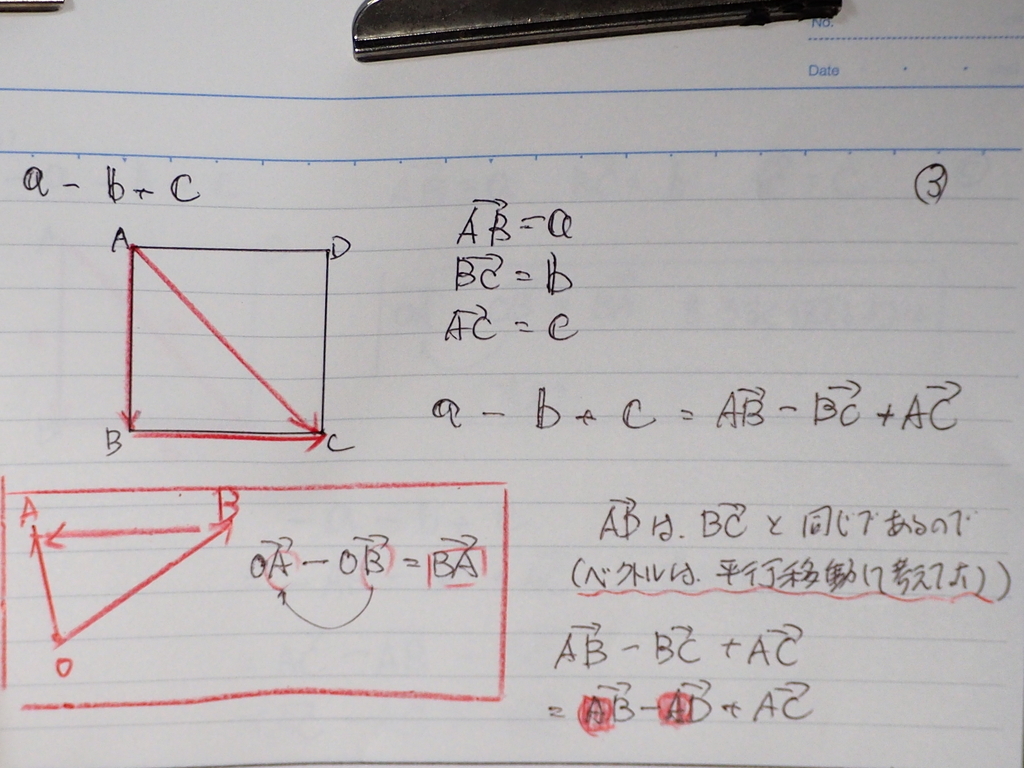 No.
Date
a - b + c
③
A
D
B
C
A͞B͞→ = a
BC→ = b
AC→ = c
a - b + c = AB→ - BC→ + AC→
A
B
O
OA→ - OB→ = BA→
AD→は、BC→と同じであるので
(ベクトルは、平行移動して考えてよい)
AB→ - BC→ + AC→
= AB→ - AD→ + AC→